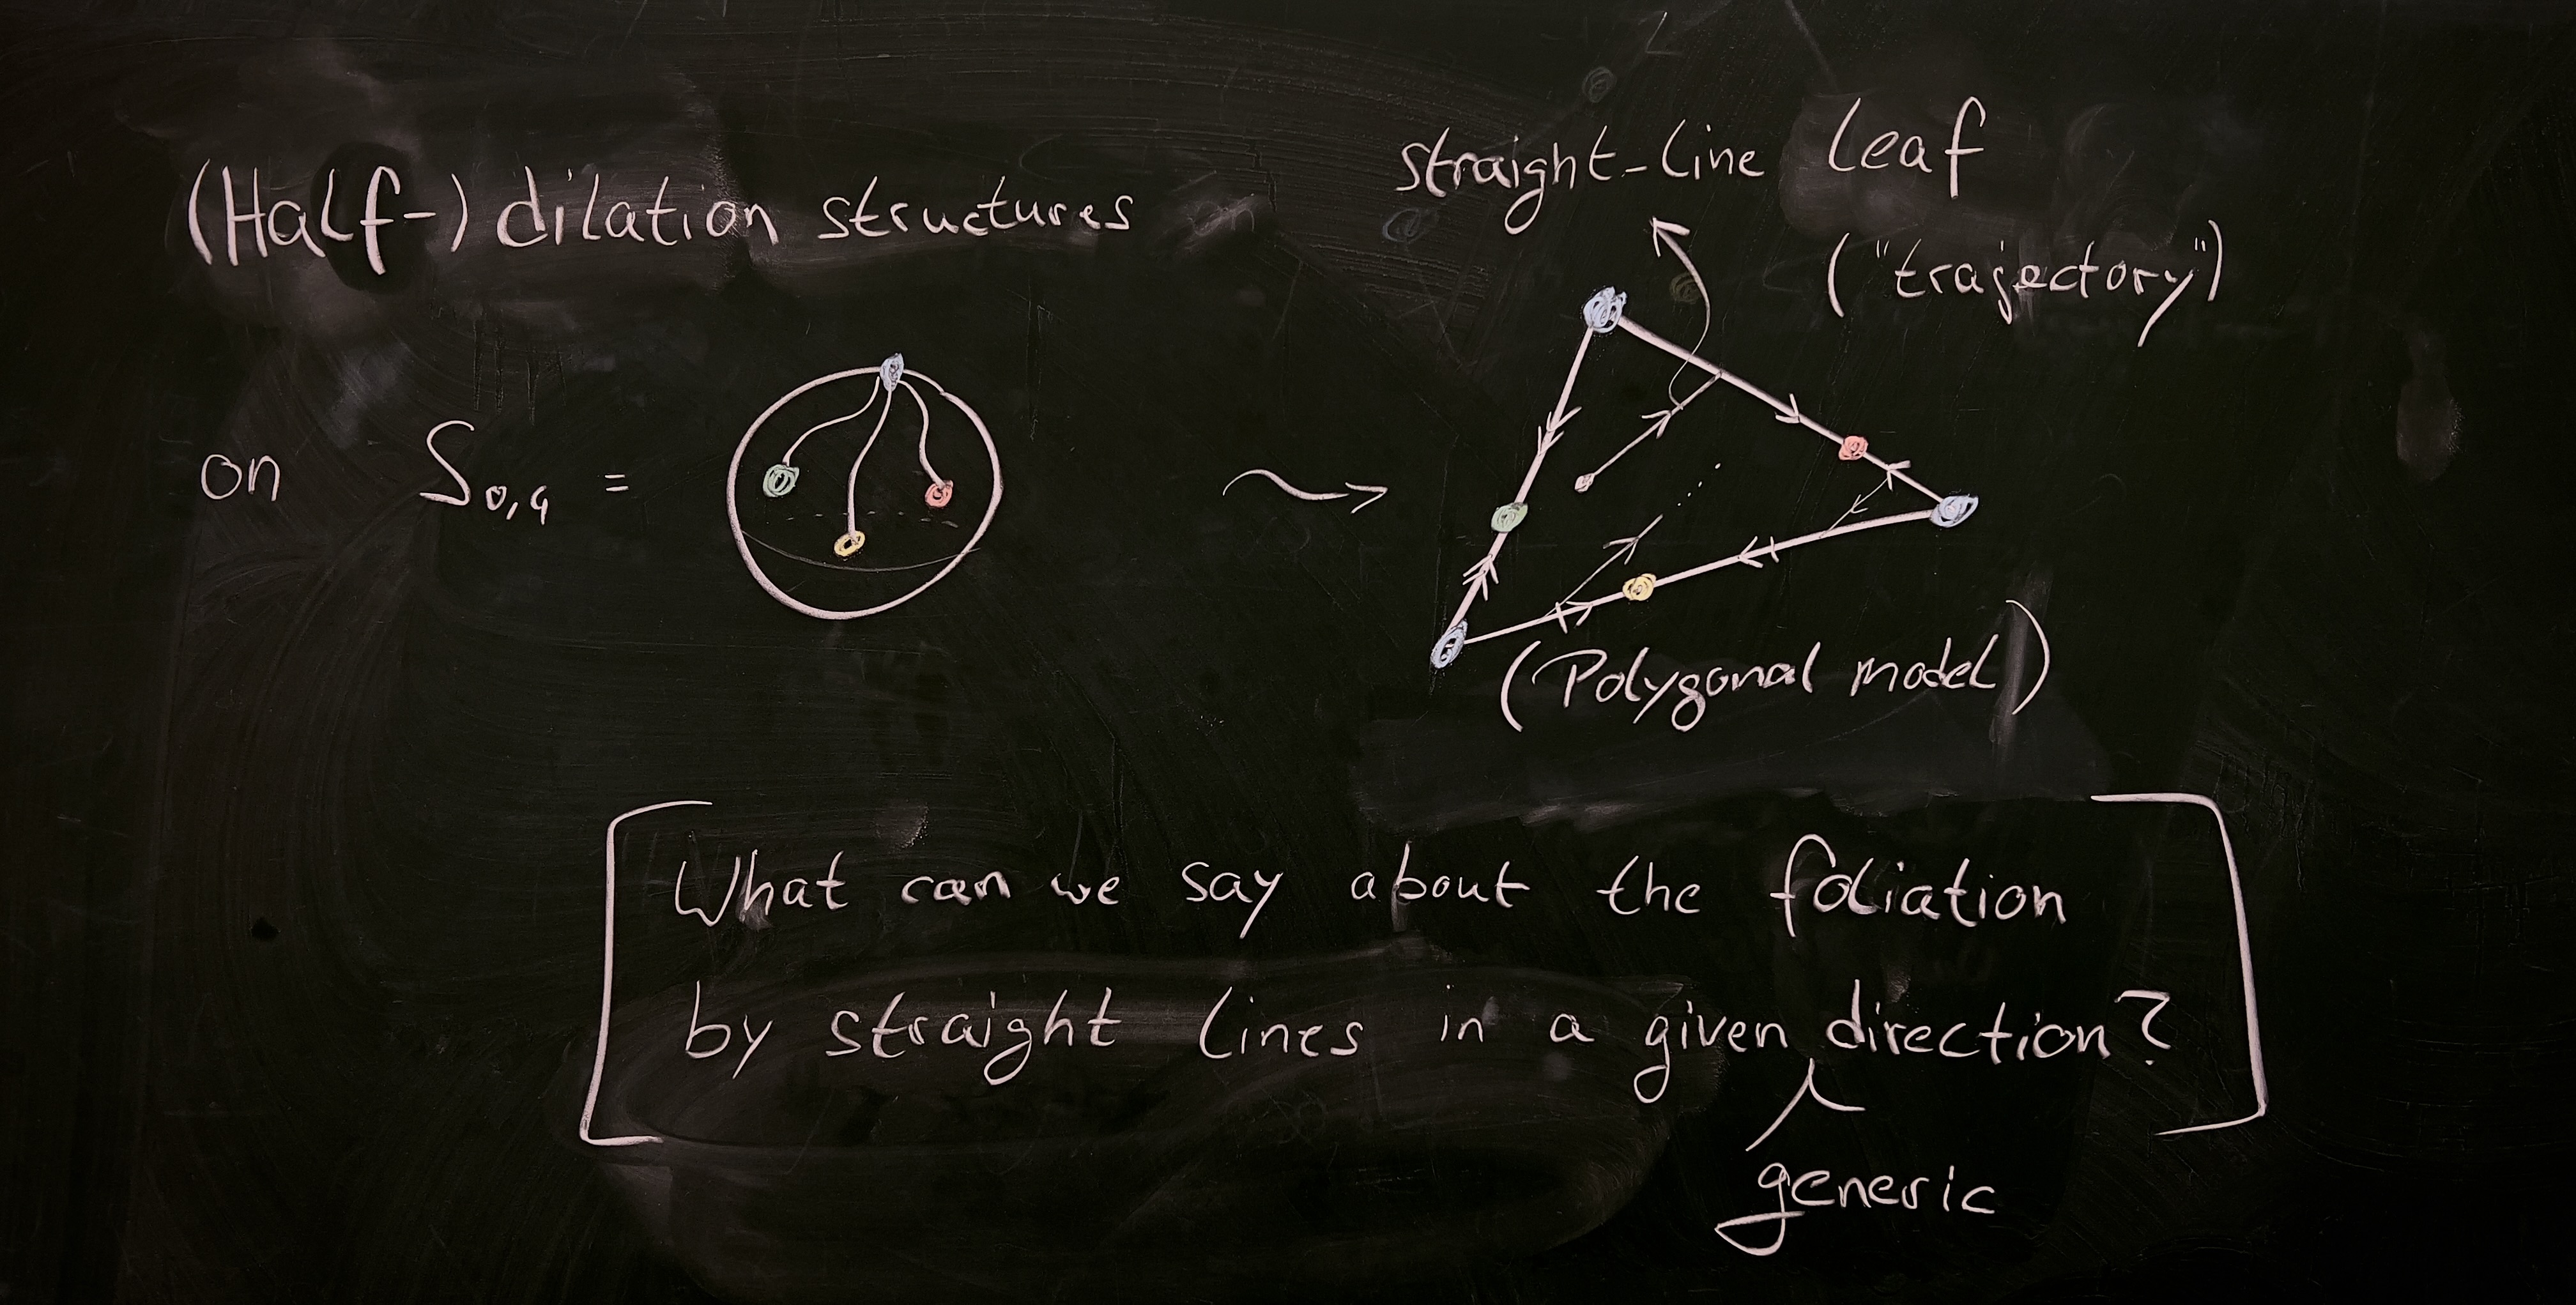 (Half-) dilation structures
on S₀,₄ =
straight-line leaf
("trajectory")
(Polygonal model)
What can we say about the foliation
by straight lines in a given direction?
generic